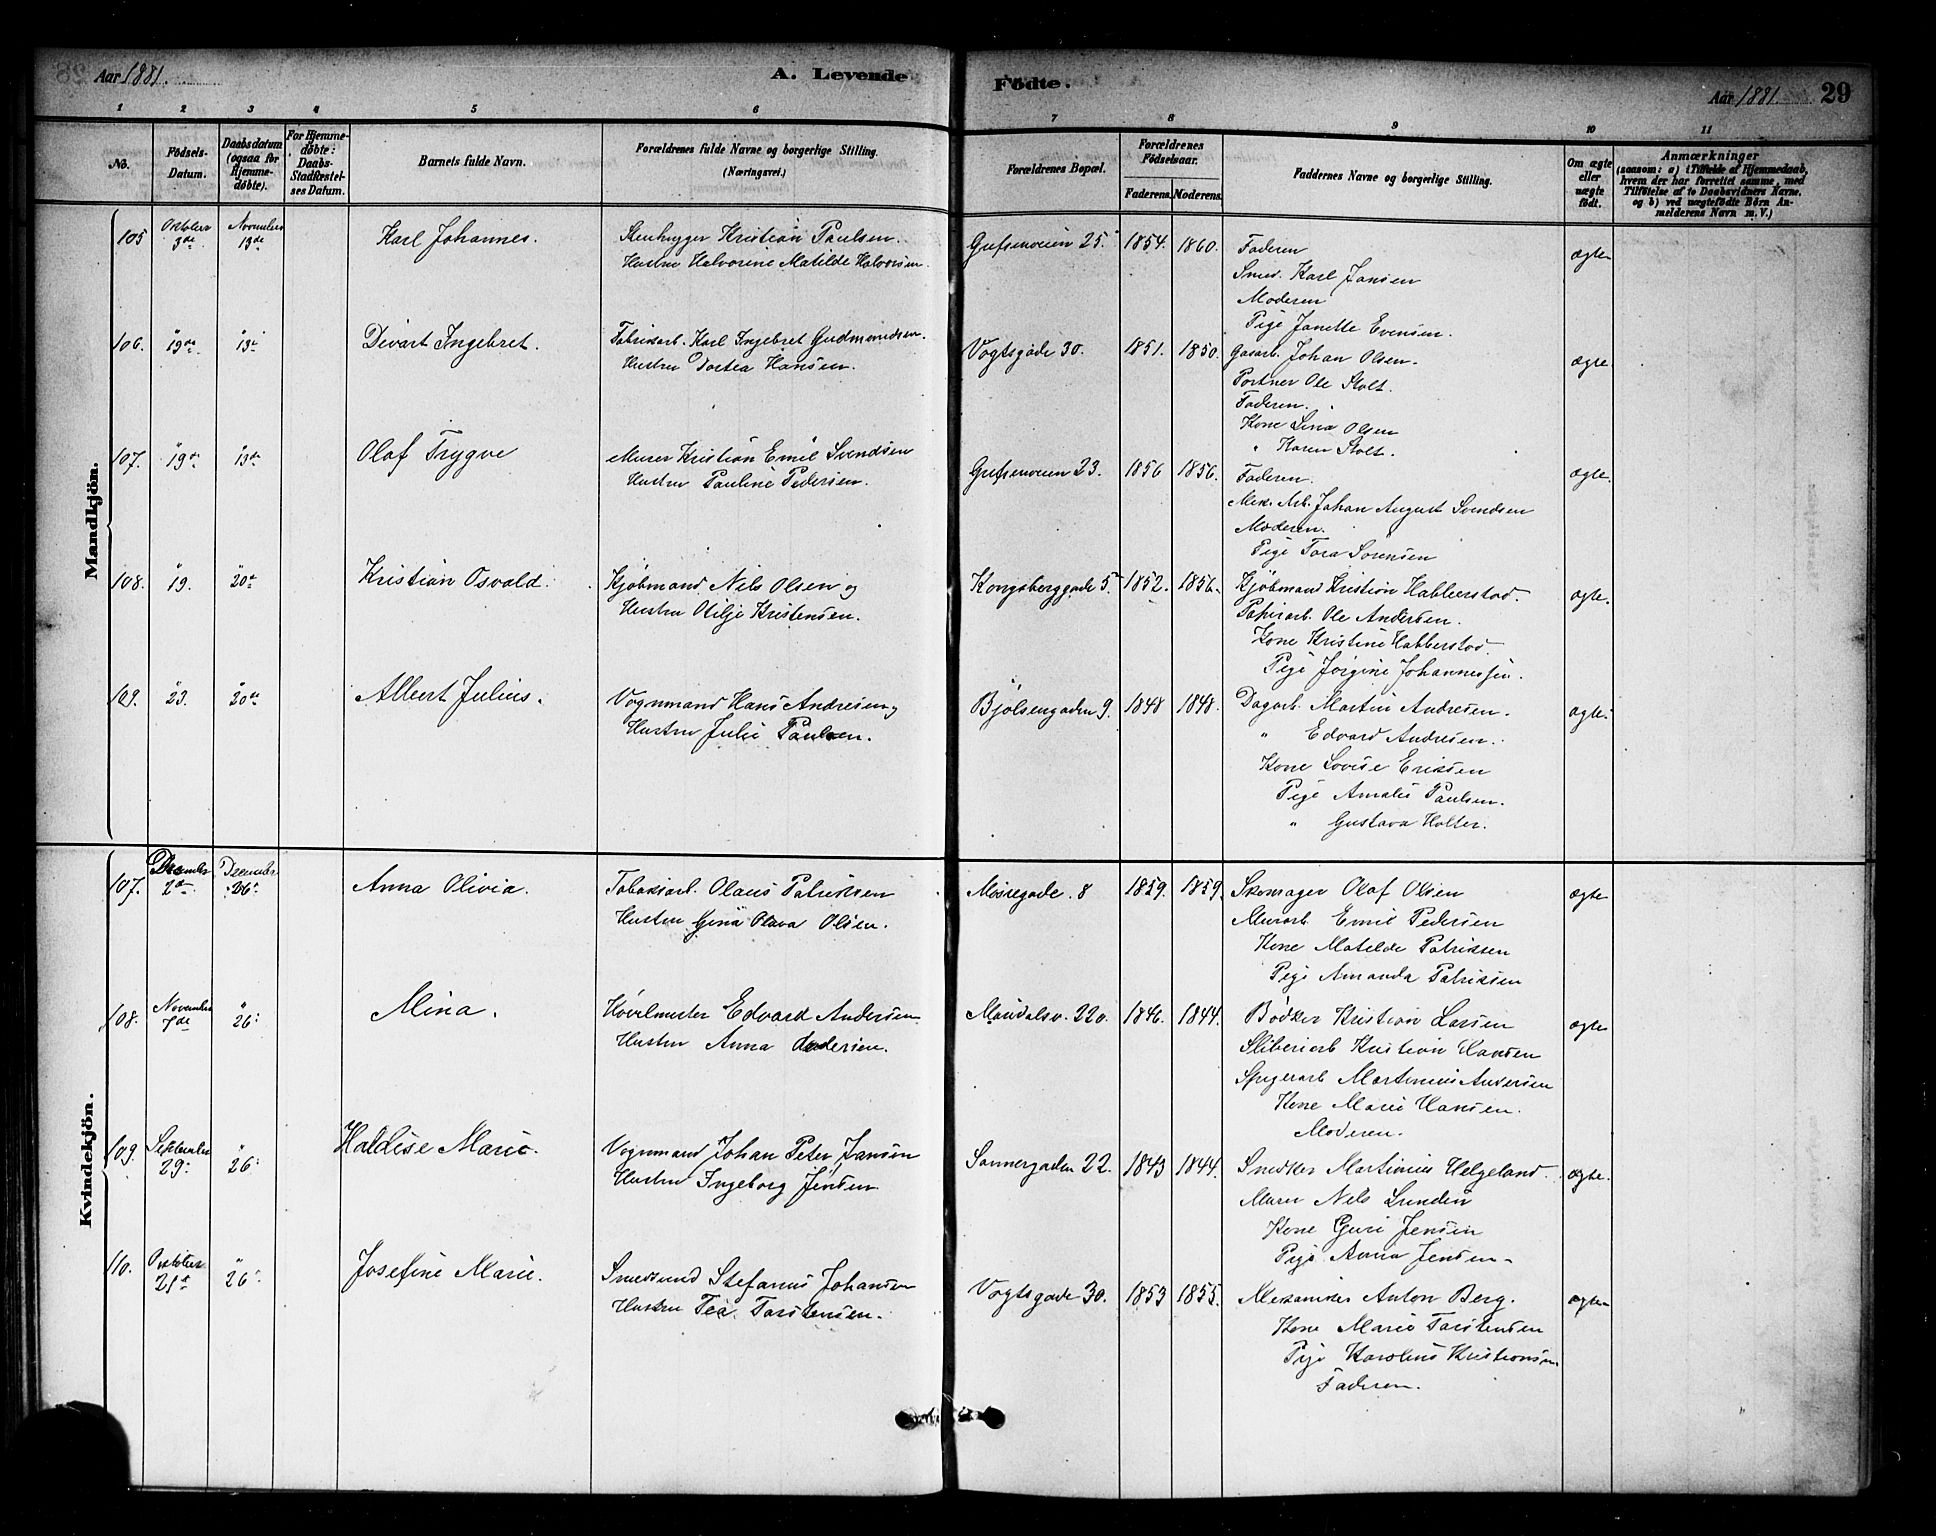 Aar 1881.
A. Levende
Fødte.
Aar 1881.
29
1 2 3 4 5 6 7 8 9 10 11
No.
Fødsels-
Datum.
Daabsdatum
(ogsaa for
Hjemme-
døbte).
For Hjemme-
døbte:
Daabs-
Stadfæstel-
ses Datum.
Barnets fulde Navn.
Forældrenes fulde Navne og borgerlige Stilling.
(Næringsvei.)
Forældrenes Bopæl.
Forældrenes
Fødselsaar.
Faderens.
Moderens.
Faddernes Navne og borgerlige Stilling.
Om ægte
eller
uægte
født.
Anmærkninger
(saasom: a) i Tilfælde af Hjemmedaab,
hvem der har forrettet samme, med
Tilføielse af to Daabsvidners Navne,
og b) ved uægtefødte Børn An-
melderens Navn m. V.)
Mandkjön.
105 Oktober 3de November 13de Karl Johannes. Stenhugger Kristian Paulsen.
Hustru Halvorine Matilde Halvorsen.
Grefsenveien 25 1854. 1860. Faderen ægte
Smed. Karl Jansen
Moderen
Pige Janette Evensen.
106. " 19de " 13de Devart Ingebret. Fabrikarb. Karl Ingebret Gudmundsen.
Hustru Dortea Hansen.
Vogtsgade 30. 1851. 1850. Gasarb. Johan Olsen. ægte
Portner Ole Stolt.
Faderen.
Kone Lina Olsen
" Karen Stolt.
107. " 19de " 13de Olaf Trygve Murer Kristian Emil Svendsen
Hustru Pauline Pedersen.
Grefsenveien 23. 1856 1856. Faderen. ægte.
Mek. Arb. Johan August Svendsen
Moderen.
Pige Tora Sørensen
108. " 19. " 20de Kristian Osvald Kjøbmand Nils Olsen og
Hustru Otilje Kristensen.
Kongsberggade 5 1852. 1856. Kjøbmand Kristian Habberstad. ægte.
Papirarb. Ole Andersen.
Kone Kristine Habberstad.
Pige Jørgine Johannessen.
109. " 23. " 20de Albert Julius. Vognmand Hans Andresen og
Hustru Julie Paulsen.
Bjølsengaden 9. 1848 1848. Dagarb. Martin Andresen. ægte
" Edvard Andresen.
Kone Lovise Eriksen
Pige Amalie Paulsen.
" Gustava Holter.
Kvindekjön.
107. December 2de December 26de Anna Olivia. Tobaksarb. Olaus Patriksen
Hustru Gina Olava Olsen.
8 1859. 1859. Skomager Olaf Olsen ægte
Murarb. Emil Pedersen
Kone Matilde Patriksen
Pige Amanda Patriksen
108. November 7de " 26. Mina. Edvard Andersen
Hustru Anna Andersen.
Maridalsv. 220. 1846. 1844. Bødker Kristian Larsen ægte
Sliberiarb Kristian Hansen
Spigerarb Martinius Andersen
Kone Marie Hansen.
Moderen.
109. September 29. " 26. Haldise Marie. Vognmand Johan Peter Jansen
Hustru Ingeborg Jensen
Sannergaden 22. 1843 1844. Snedker Martinius Helgeland. ægte.
Murer Nils Lunden
Kone Guri Jensen
Pige Anna Jensen
110. Oktober 21de " 26. Josefine Marie. Smedsvend Stefanus Johansen
Hustru Tea Torstensen.
Vogtsgade 30. 1853 1855. Mekaniker Anton Berg. ægte
Kone Marie Torstensen
Pige Karoline Kristiansen
Faderen.